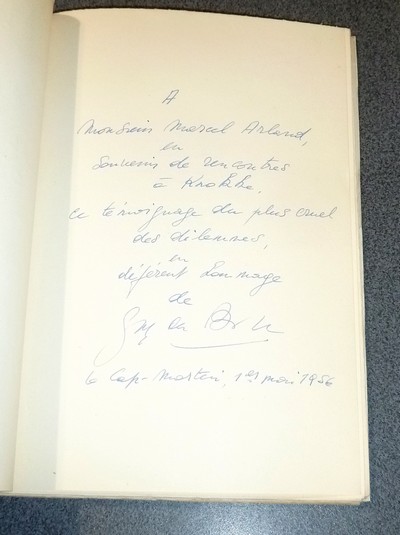 A
Monsieur Marcel Arland,
en
souvenir de rencontres
à Knokke,
ce témoignage du plus cruel
des dilemmes,
en
déférent hommage
de
Guy
Cap-Martin, 1er mai 1956